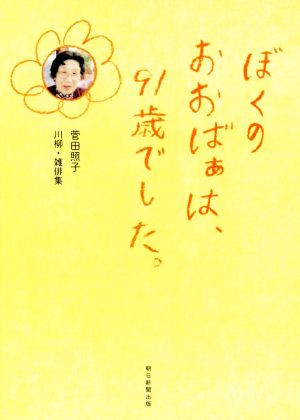 ぼくの
おおばぁは、
91歳でした。
菅田照子
川柳・雑俳集
朝日新聞出版